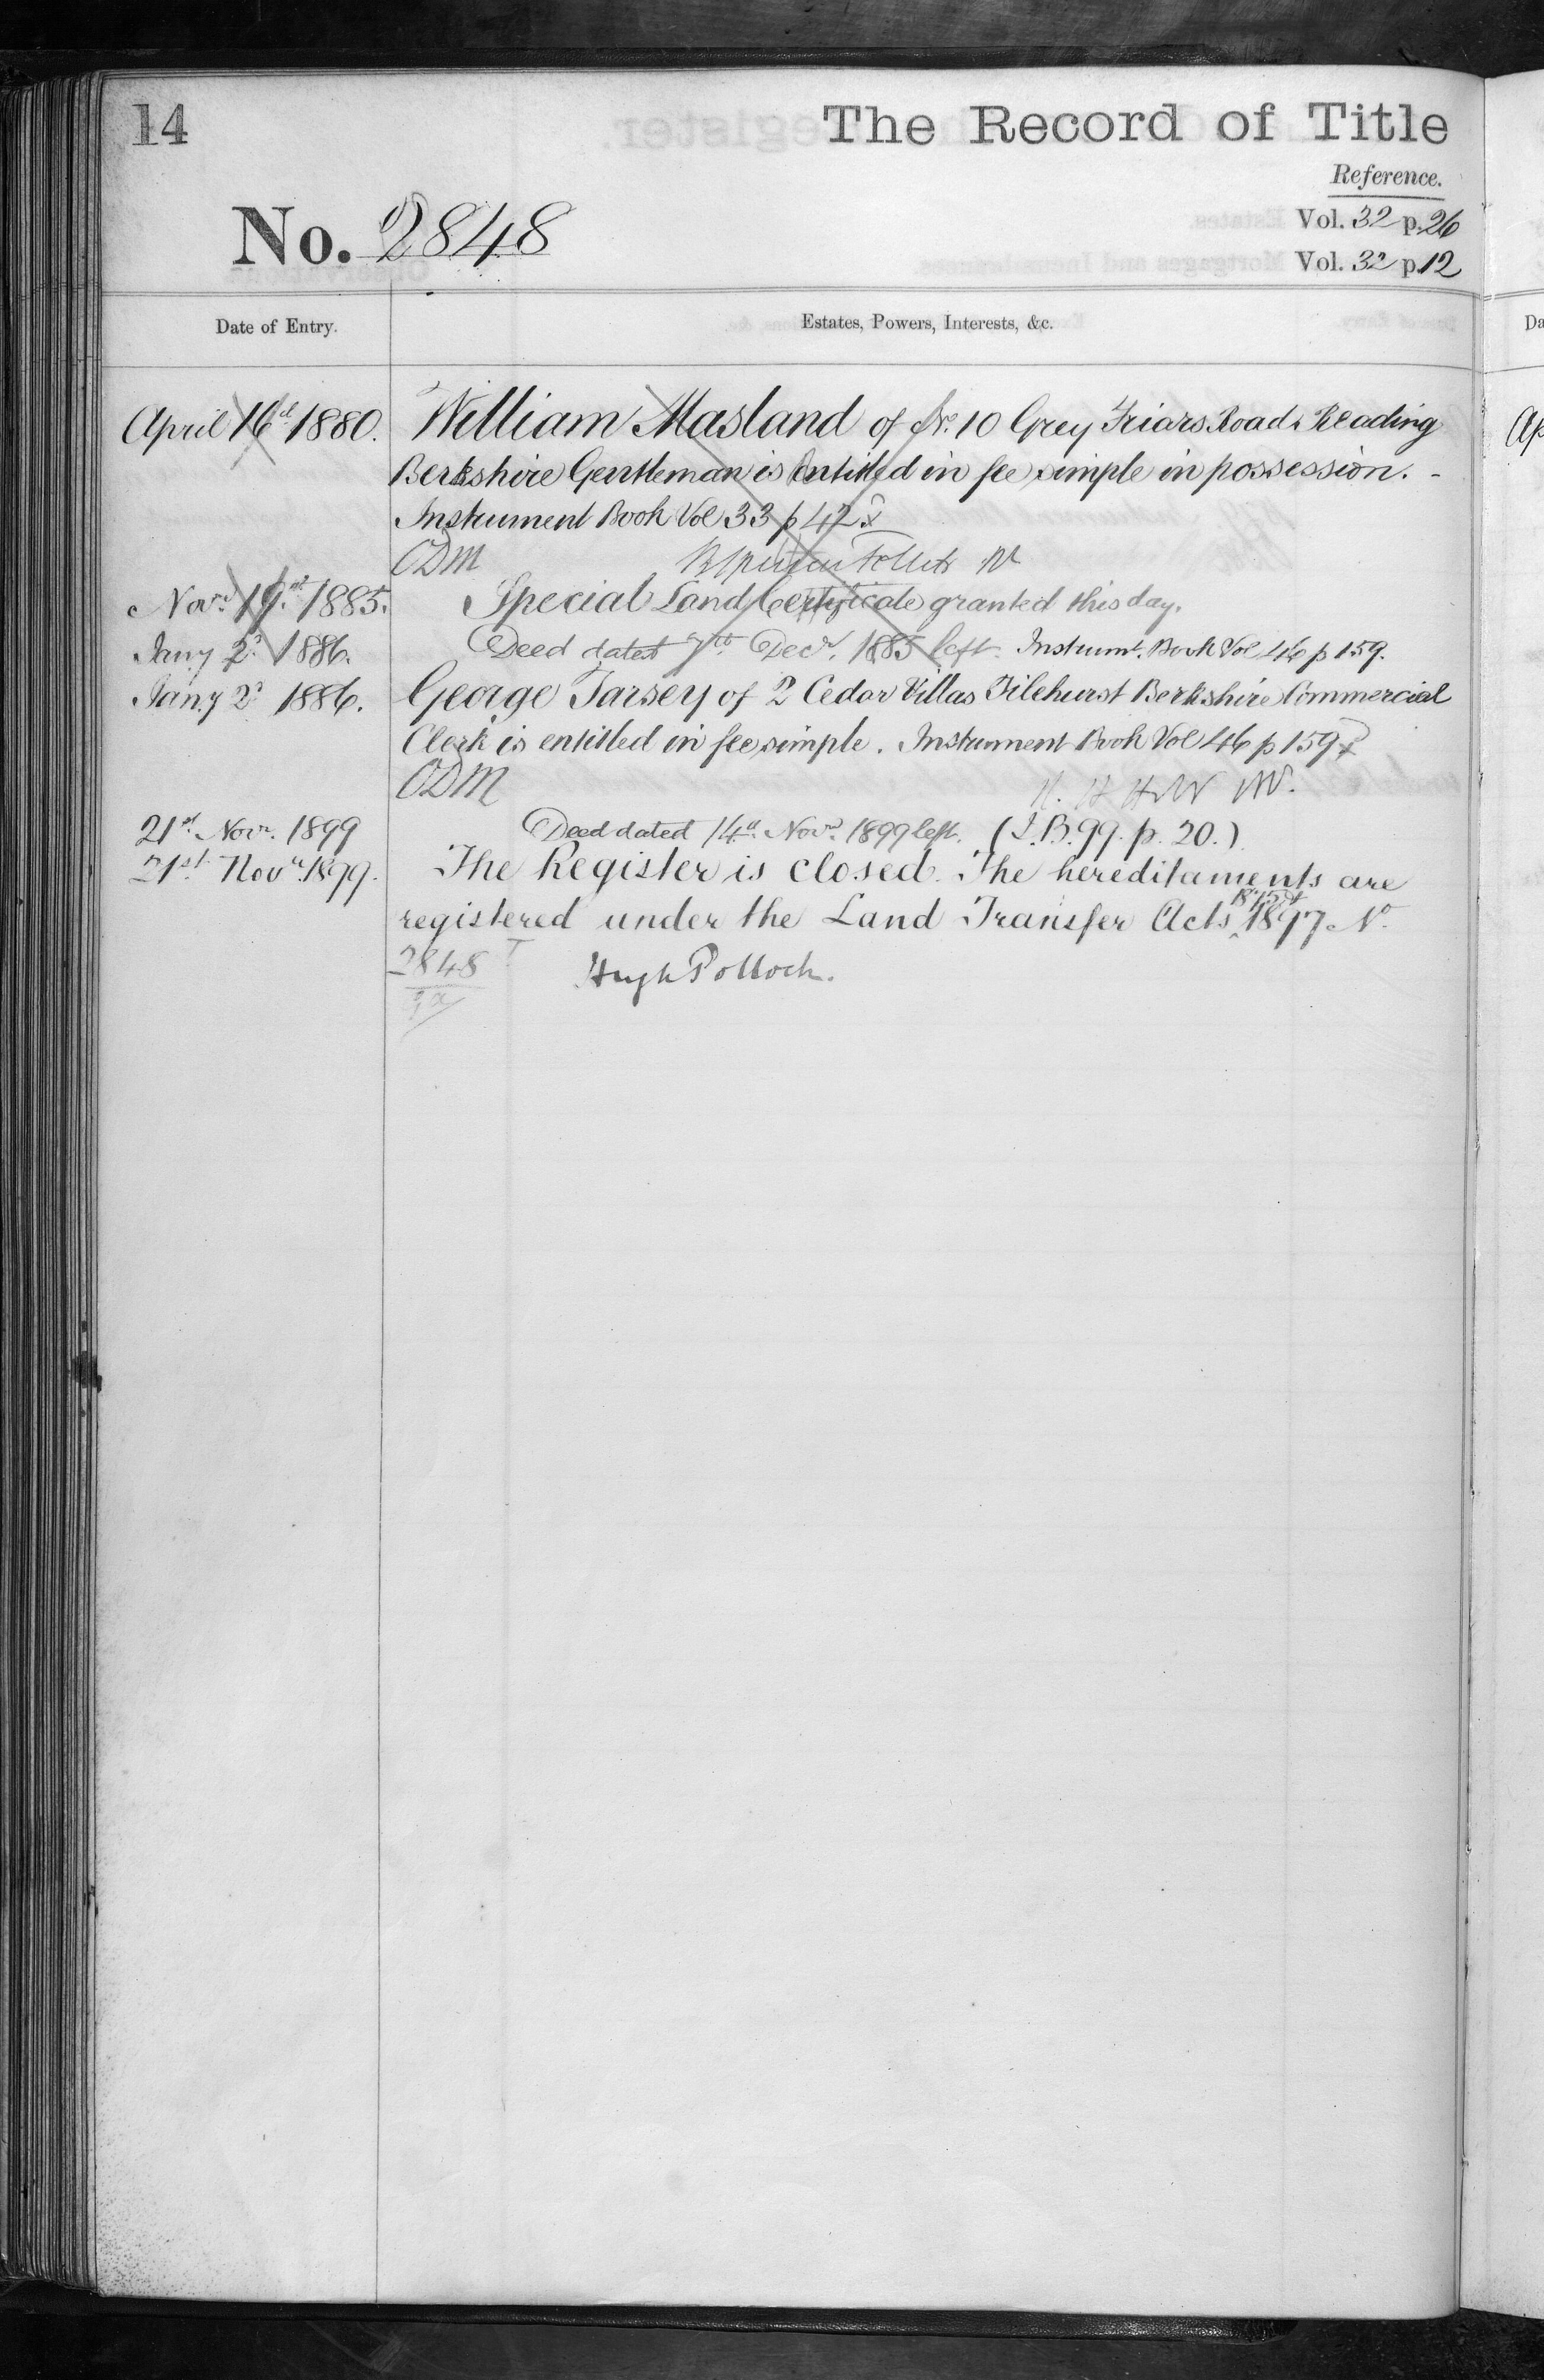 14
The Record of Title
Reference.
Vol. 32 p. 26
No. 2848
Vol. 32 p. 12
Date of Entry.
Estates, Powers, Interests, &c.
April 16th 1880. William Masland of No. 10 Grey Friars Road Reading
Berkshire Gentleman is Entitled in fee simple in possession. -
Instrument Book Vol 33 p 42
ODM
Novr. 19th 1885. Special Land Certificate granted this day.
Jany 2d 1886. Deed dated 7th Decr. 1885 left. Instrumt. Book Vol 46 p 159.
Jany 2d 1886. George Tarsey of 2 Cedar Villas Tilehurst Berkshire Commercial
Clerk is entitled in fee simple. Instrument Book Vol 46 p 159
ODM
21st Novr. 1899 Deed dated 14th Novr. 1899 left. (I.B. 99. p. 20.)
21st Novr. 1899. The Register is closed. The hereditaments are
registered under the Land Transfer Acts 1875 & 1897 No
2848
Hugh Pollock.